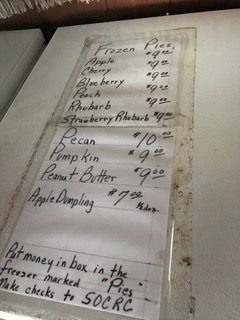 Frozen Pies
Apple $9.00
Cherry $9.00
Blueberry $9.00
Peach $9.00
Rhubarb $9.00
Strawberry Rhubarb $9.00
Pecan $10.00
Pumpkin $9.00
Peanut Butter $9.00
Apple Dumpling $7.00
½ doz.
Put money in box in the
freezer marked "Pies"
Make checks to SOCRC